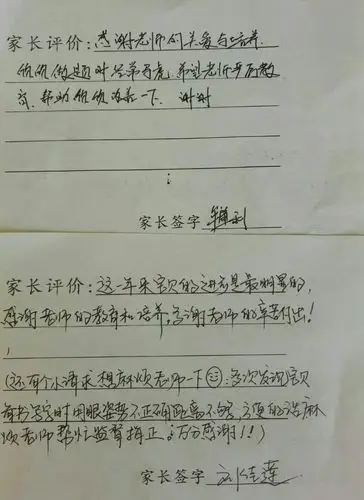 家长评价:感谢老师的关爱与培养.
做题时 希望老师平时教
育、帮助 改善一下. 谢谢
家长签字
家长评价:这一年来宝贝的进步是最明显的,
感谢老师的教育和培养,感谢老师的辛苦付出!
(还有个小请求想麻烦老师一下☺:多次发现宝贝
看书写字时用眼姿势不正确距离不够,方便的话麻
烦老师帮忙监督指正,万分感谢!!)
家长签字 莲